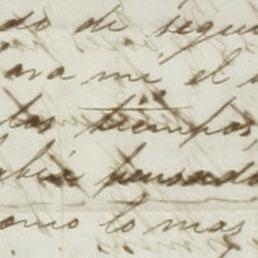 do de segui
Para mi el
tas tiempos,
abia pensado
como lo mas